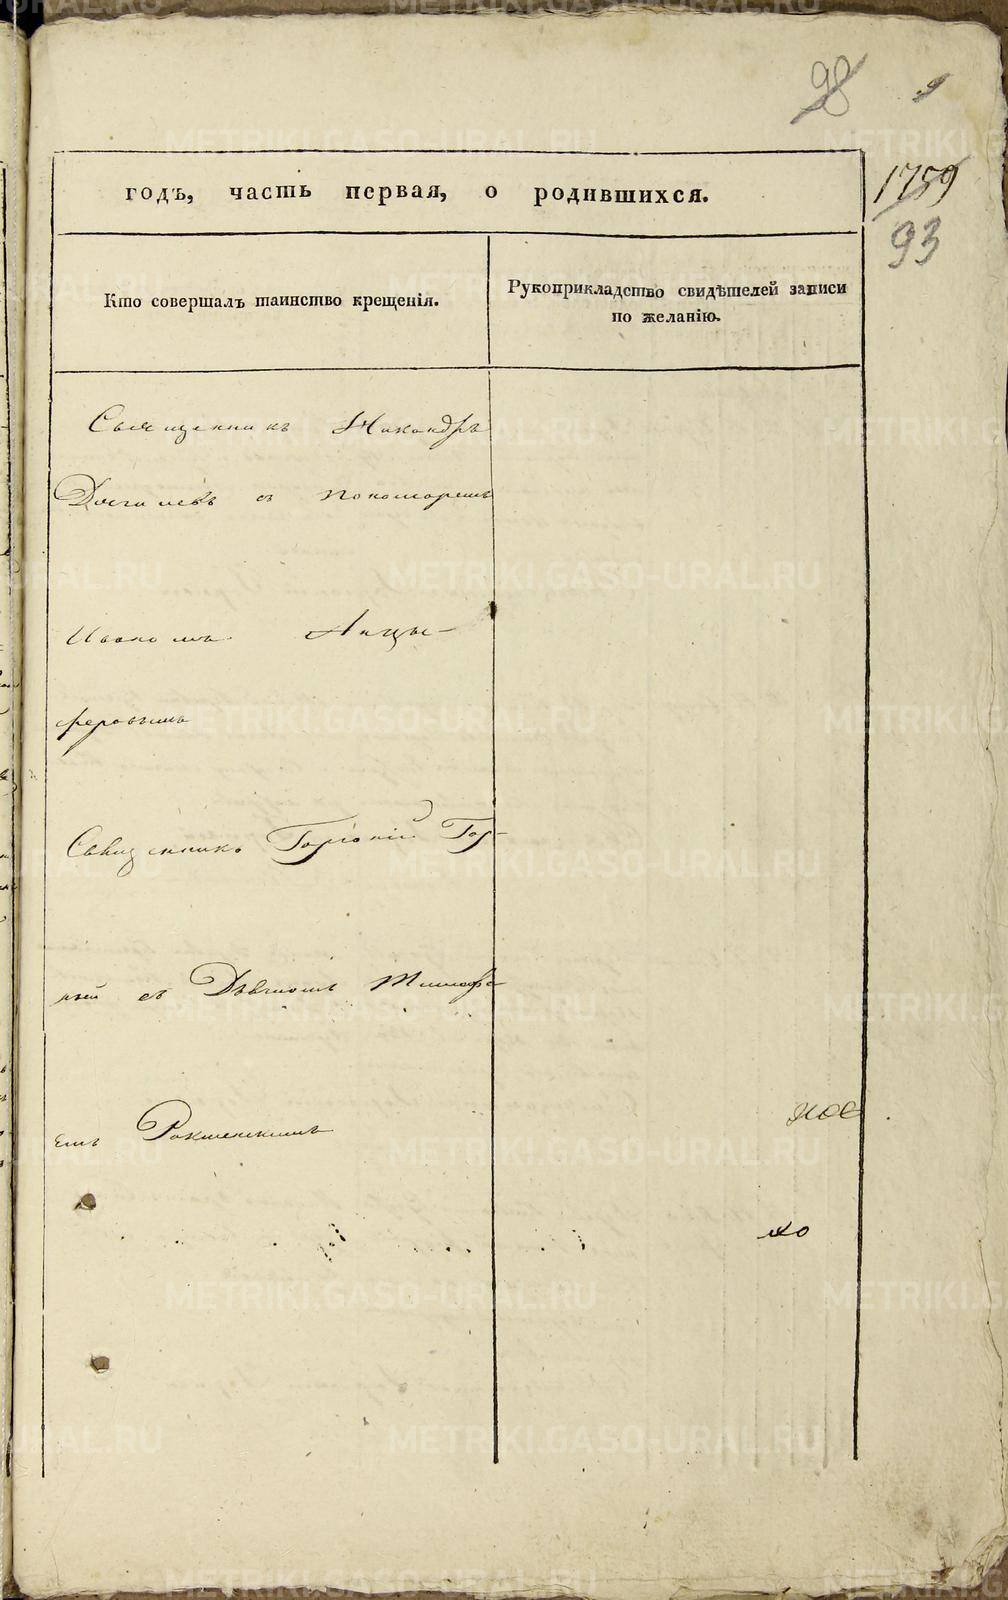 98
1759
93
годъ, часть первая, о родившихся.
Кто совершалъ таинство крещенія.
Рукоприкладство свидѣтелей записи
по желанію.
Священникъ Никандръ
съ пономаремъ
Иваномъ Анцы-
феровымъ
Священникъ Горгоній Гор-
ный съ Дьячкомъ Тимофе-
емъ
METRIKI.GASO-URAL.RU